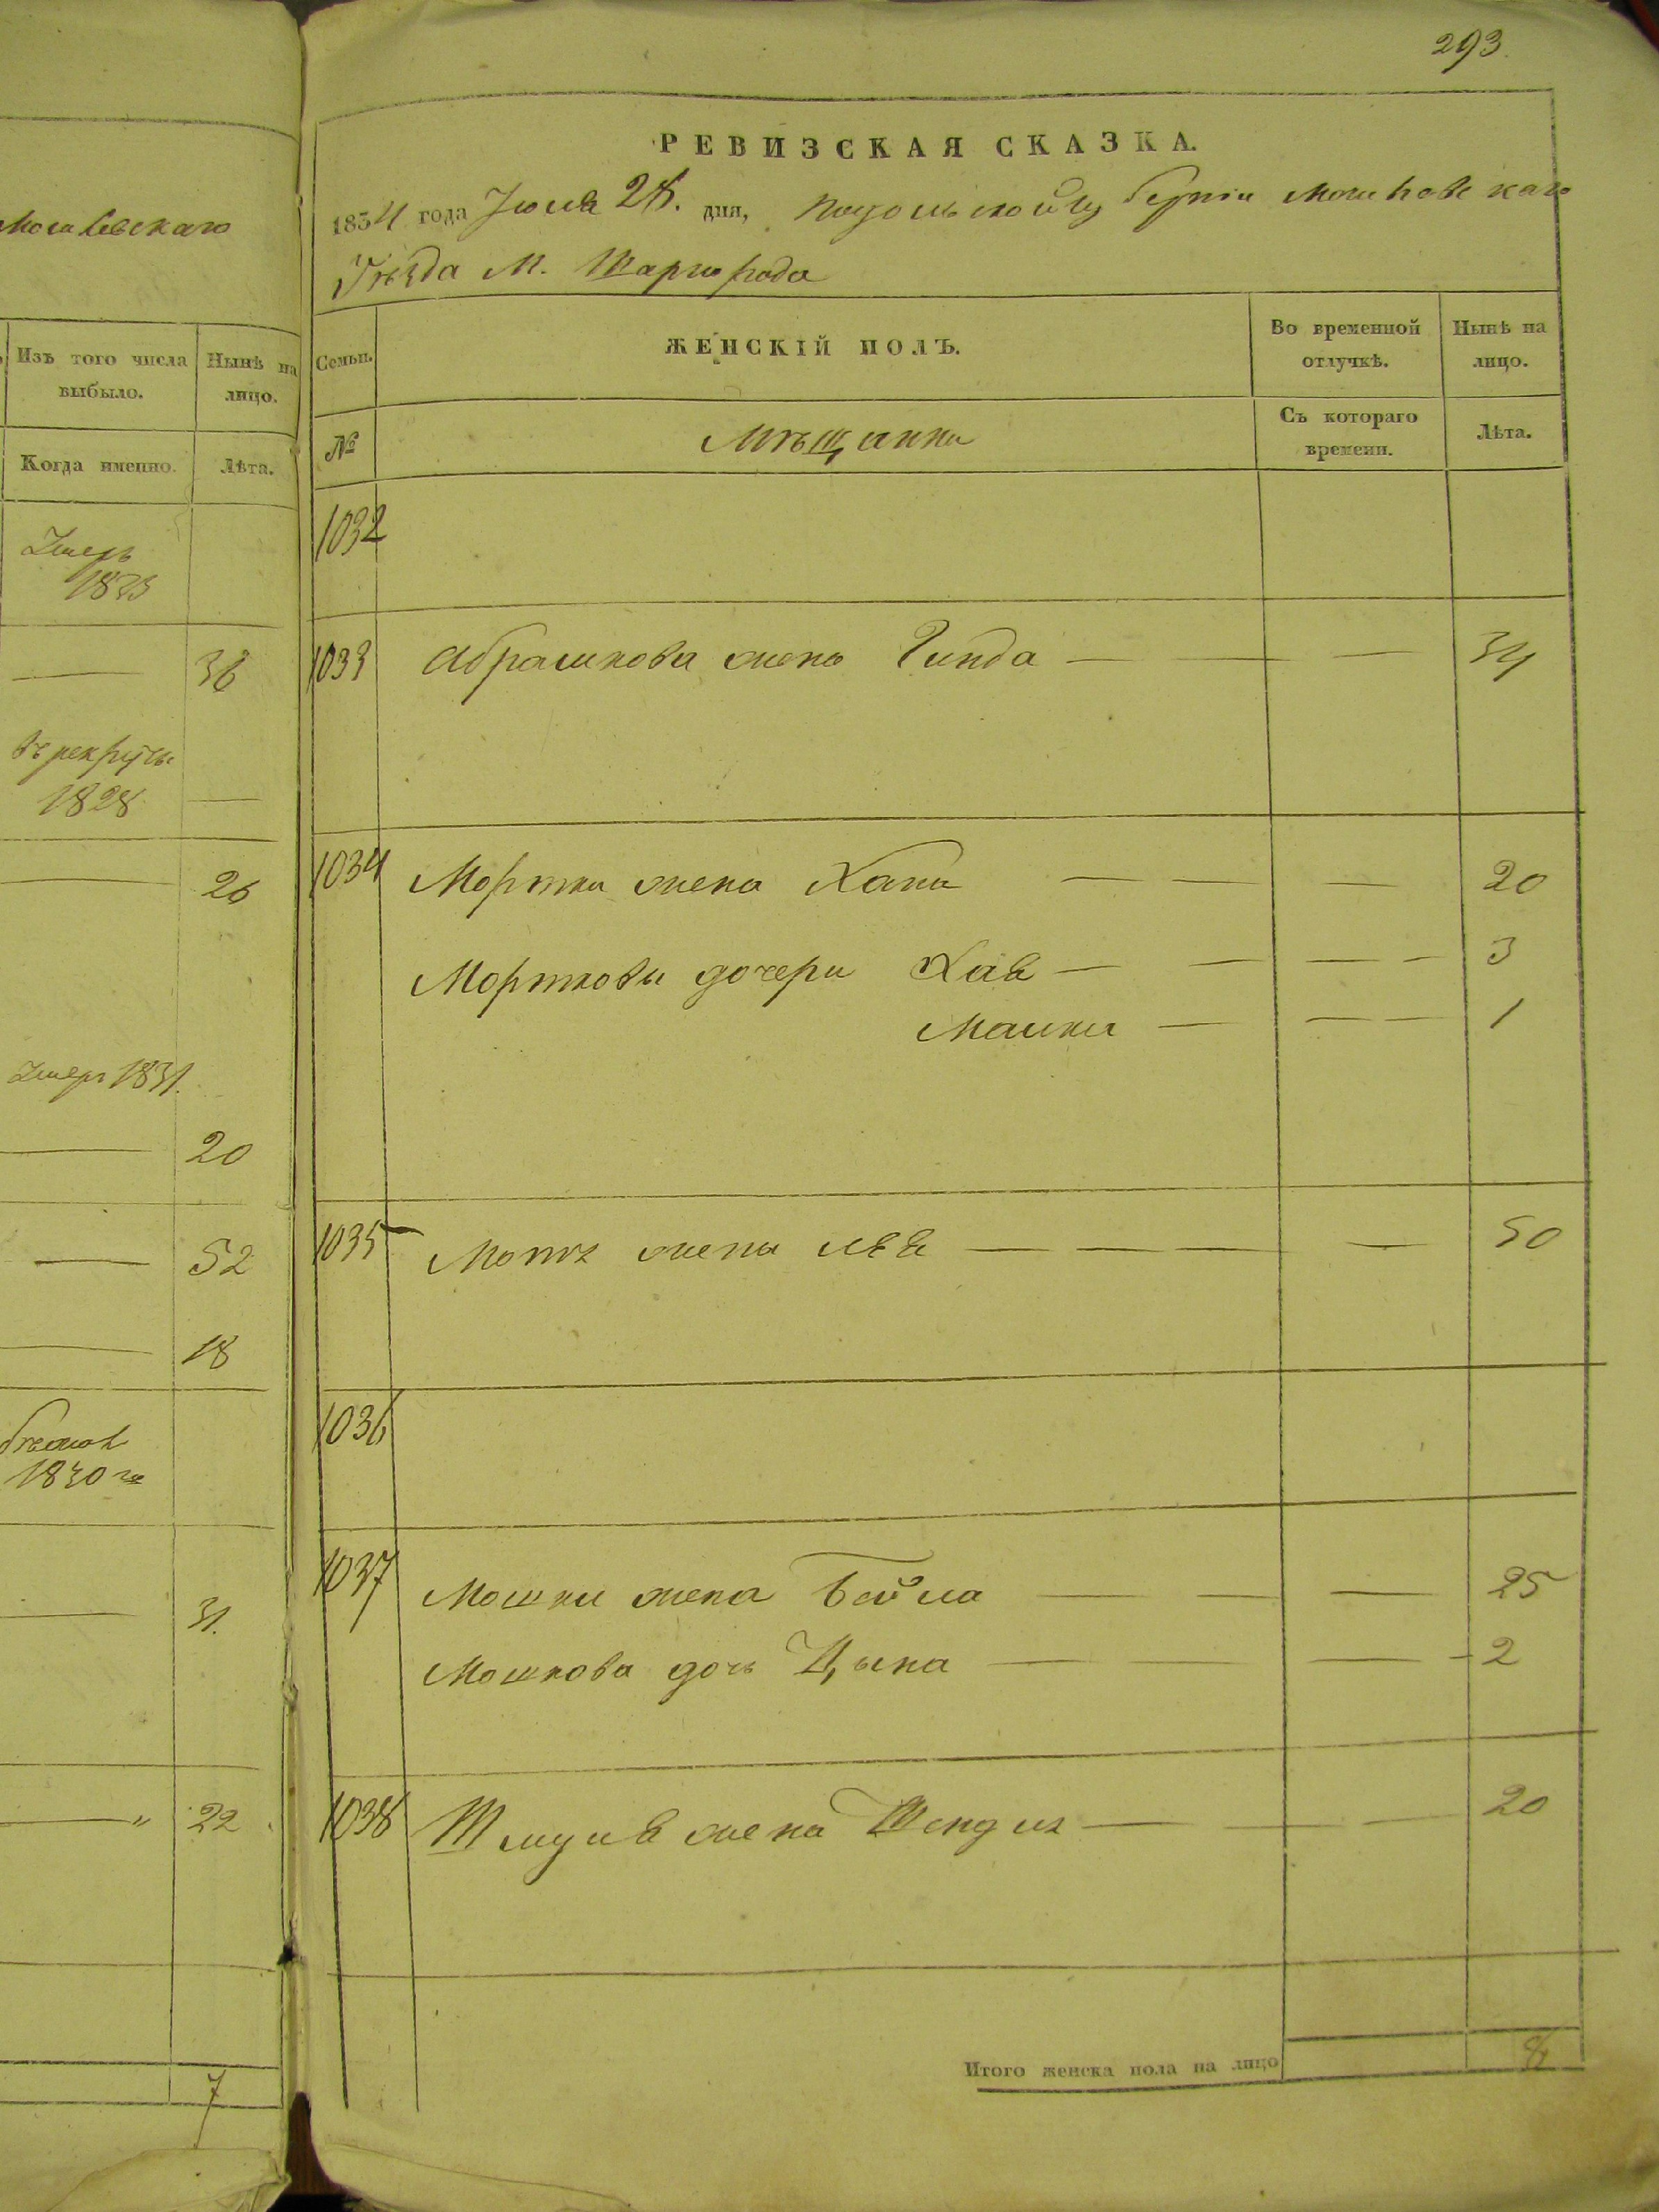 Могилевскаго
Изъ того числа выбыло.
Ныне на лицо.
Когда именно.
Лѣта.
Умеръ
1823
36
въ рекруты
1828
26
Умеръ 1831.
20
52
18
1830 го
31.
22
7
293.
РЕВИЗСКАЯ СКАЗКА.
1834 года Июля 28. дня, Подольской Губерніи Могилевскаго
Уѣзда М. Шаргорода
Семьи.
ЖЕНСКІЙ ПОЛЪ.
Во временной отлучкѣ.
Нынѣ на лицо.
№
Мѣщанки
Съ котораго времени.
Лѣта.
1032
1033 Абрашкова жена Гинда — — 34
1034 Мортки жена Хана — — — 20
Морткови дочери Хая — — — — 3
Машка — — — 1
1035 жена Лея — — — — 50
1036
1037 Мошки жена Бейла — — — 25
Мошкова дочь Цына — — — — 2
1038 жена Шендля — — — 20
Итого женска пола на лицо
8